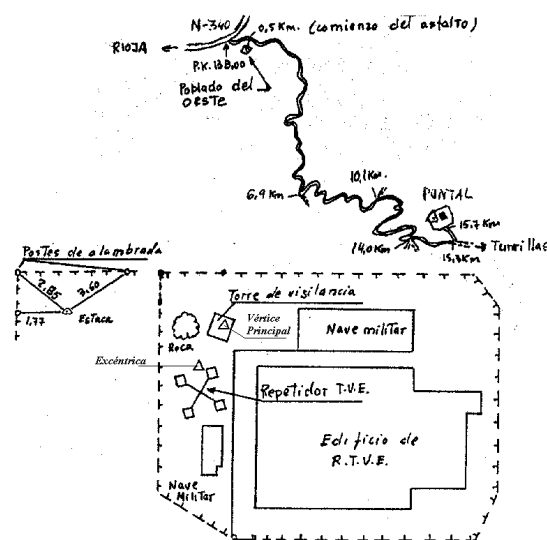 N-340
0,5 Km. (comienzo del asfalto)
RIOJA
P.K. 138,00
Poblado del
OESTE
6,9 Km
10,1 Km.
PUNTAL
15,7 Km
14,0 Km
15,3 Km
Turrillas
Postes de alambrada
2,85
3,60
1,77
Estaca
Torre de vigilancia
Vértice
Principal
Nave militar
Roca
Excéntrica
Repetidor T.V.E.
Edificio de
R.T.V.E.
Nave
Militar